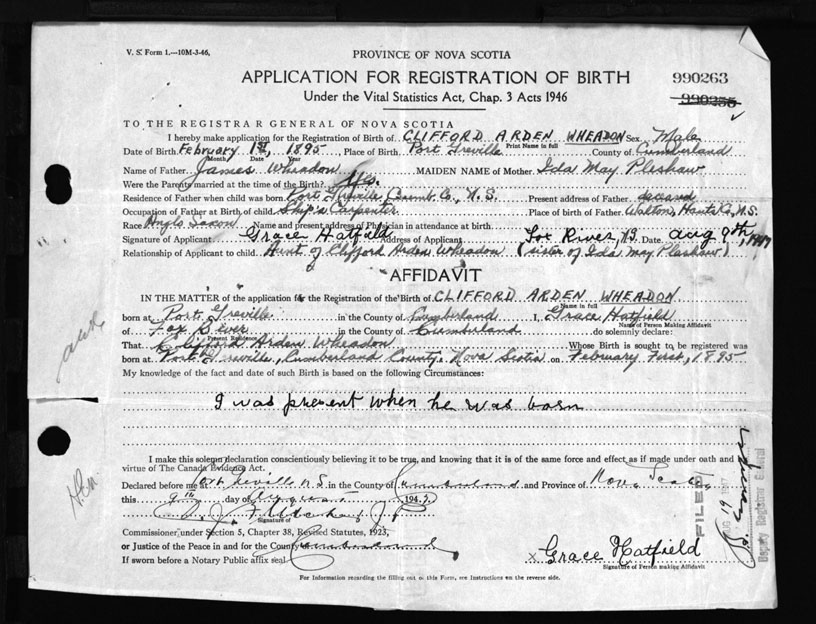 V. S. Form 1.—10M-3-46,
PROVINCE OF NOVA SCOTIA
APPLICATION FOR REGISTRATION OF BIRTH
990263
Under the Vital Statistics Act, Chap. 3 Acts 1946
990256
TO THE REGISTRAR GENERAL OF NOVA SCOTIA
I hereby make application for the Registration of Birth of CLIFFORD ARDEN WHEADON Sex. Male
Print Name in full
Date of Birth February 1st, 1895 Place of Birth Port Greville County of Cumberland
Month Date Year
Name of Father James Wheadon MAIDEN NAME of Mother Ida May Pleshaw
Were the Parents married at the time of the Birth? Yes.
Residence of Father when child was born Port Greville, Cumb. Co., N.S. Present address of Father deceased
Occupation of Father at Birth of child Ship's Carpenter Place of birth of Father Walton, Hants Co., N.S.
Race Anglo Saxon Name and present address of Physician in attendance at birth
Signature of Applicant Grace Hatfield Address of Applicant Fox River, N.S. Date Aug 9th, 1947
Relationship of Applicant to child Aunt of Clifford Arden Wheadon (sister of Ida May Pleshaw)
AFFIDAVIT
IN THE MATTER of the application for the Registration of the Birth of CLIFFORD ARDEN WHEADON
Name in full
born at Port Greville in the County of Cumberland I, Grace Hatfield
Name of Person Making Affidavit
of Fox River in the County of Cumberland do solemnly declare:
Present Residence
That Clifford Arden Wheadon Whose Birth is sought to be registered was
born at Port Greville, Cumberland County, Nova Scotia on February First, 1895
My knowledge of the fact and date of such Birth is based on the following Circumstances:
I was present when he was born
I make this solemn declaration conscientiously believing it to be true, and knowing that it is of the same force and effect as if made under oath and
virtue of The Canada Evidence Act.
Declared before me at Port Greville N.S in the County of Cumberland and Province of Nova Scotia
this 9th day of August 1947
J.P.
Signature of
Commissioner under Section 5, Chapter 38, Revised Statutes, 1923,
or Justice of the Peace in and for the County Cumberland
If sworn before a Notary Public affix seal
x Grace Hatfield
Signature of Person making Affidavit
For Information regarding the filling out of this Form, see Instructions on the reverse side.
FILED
AUG 19 1947
Deputy Registrar General